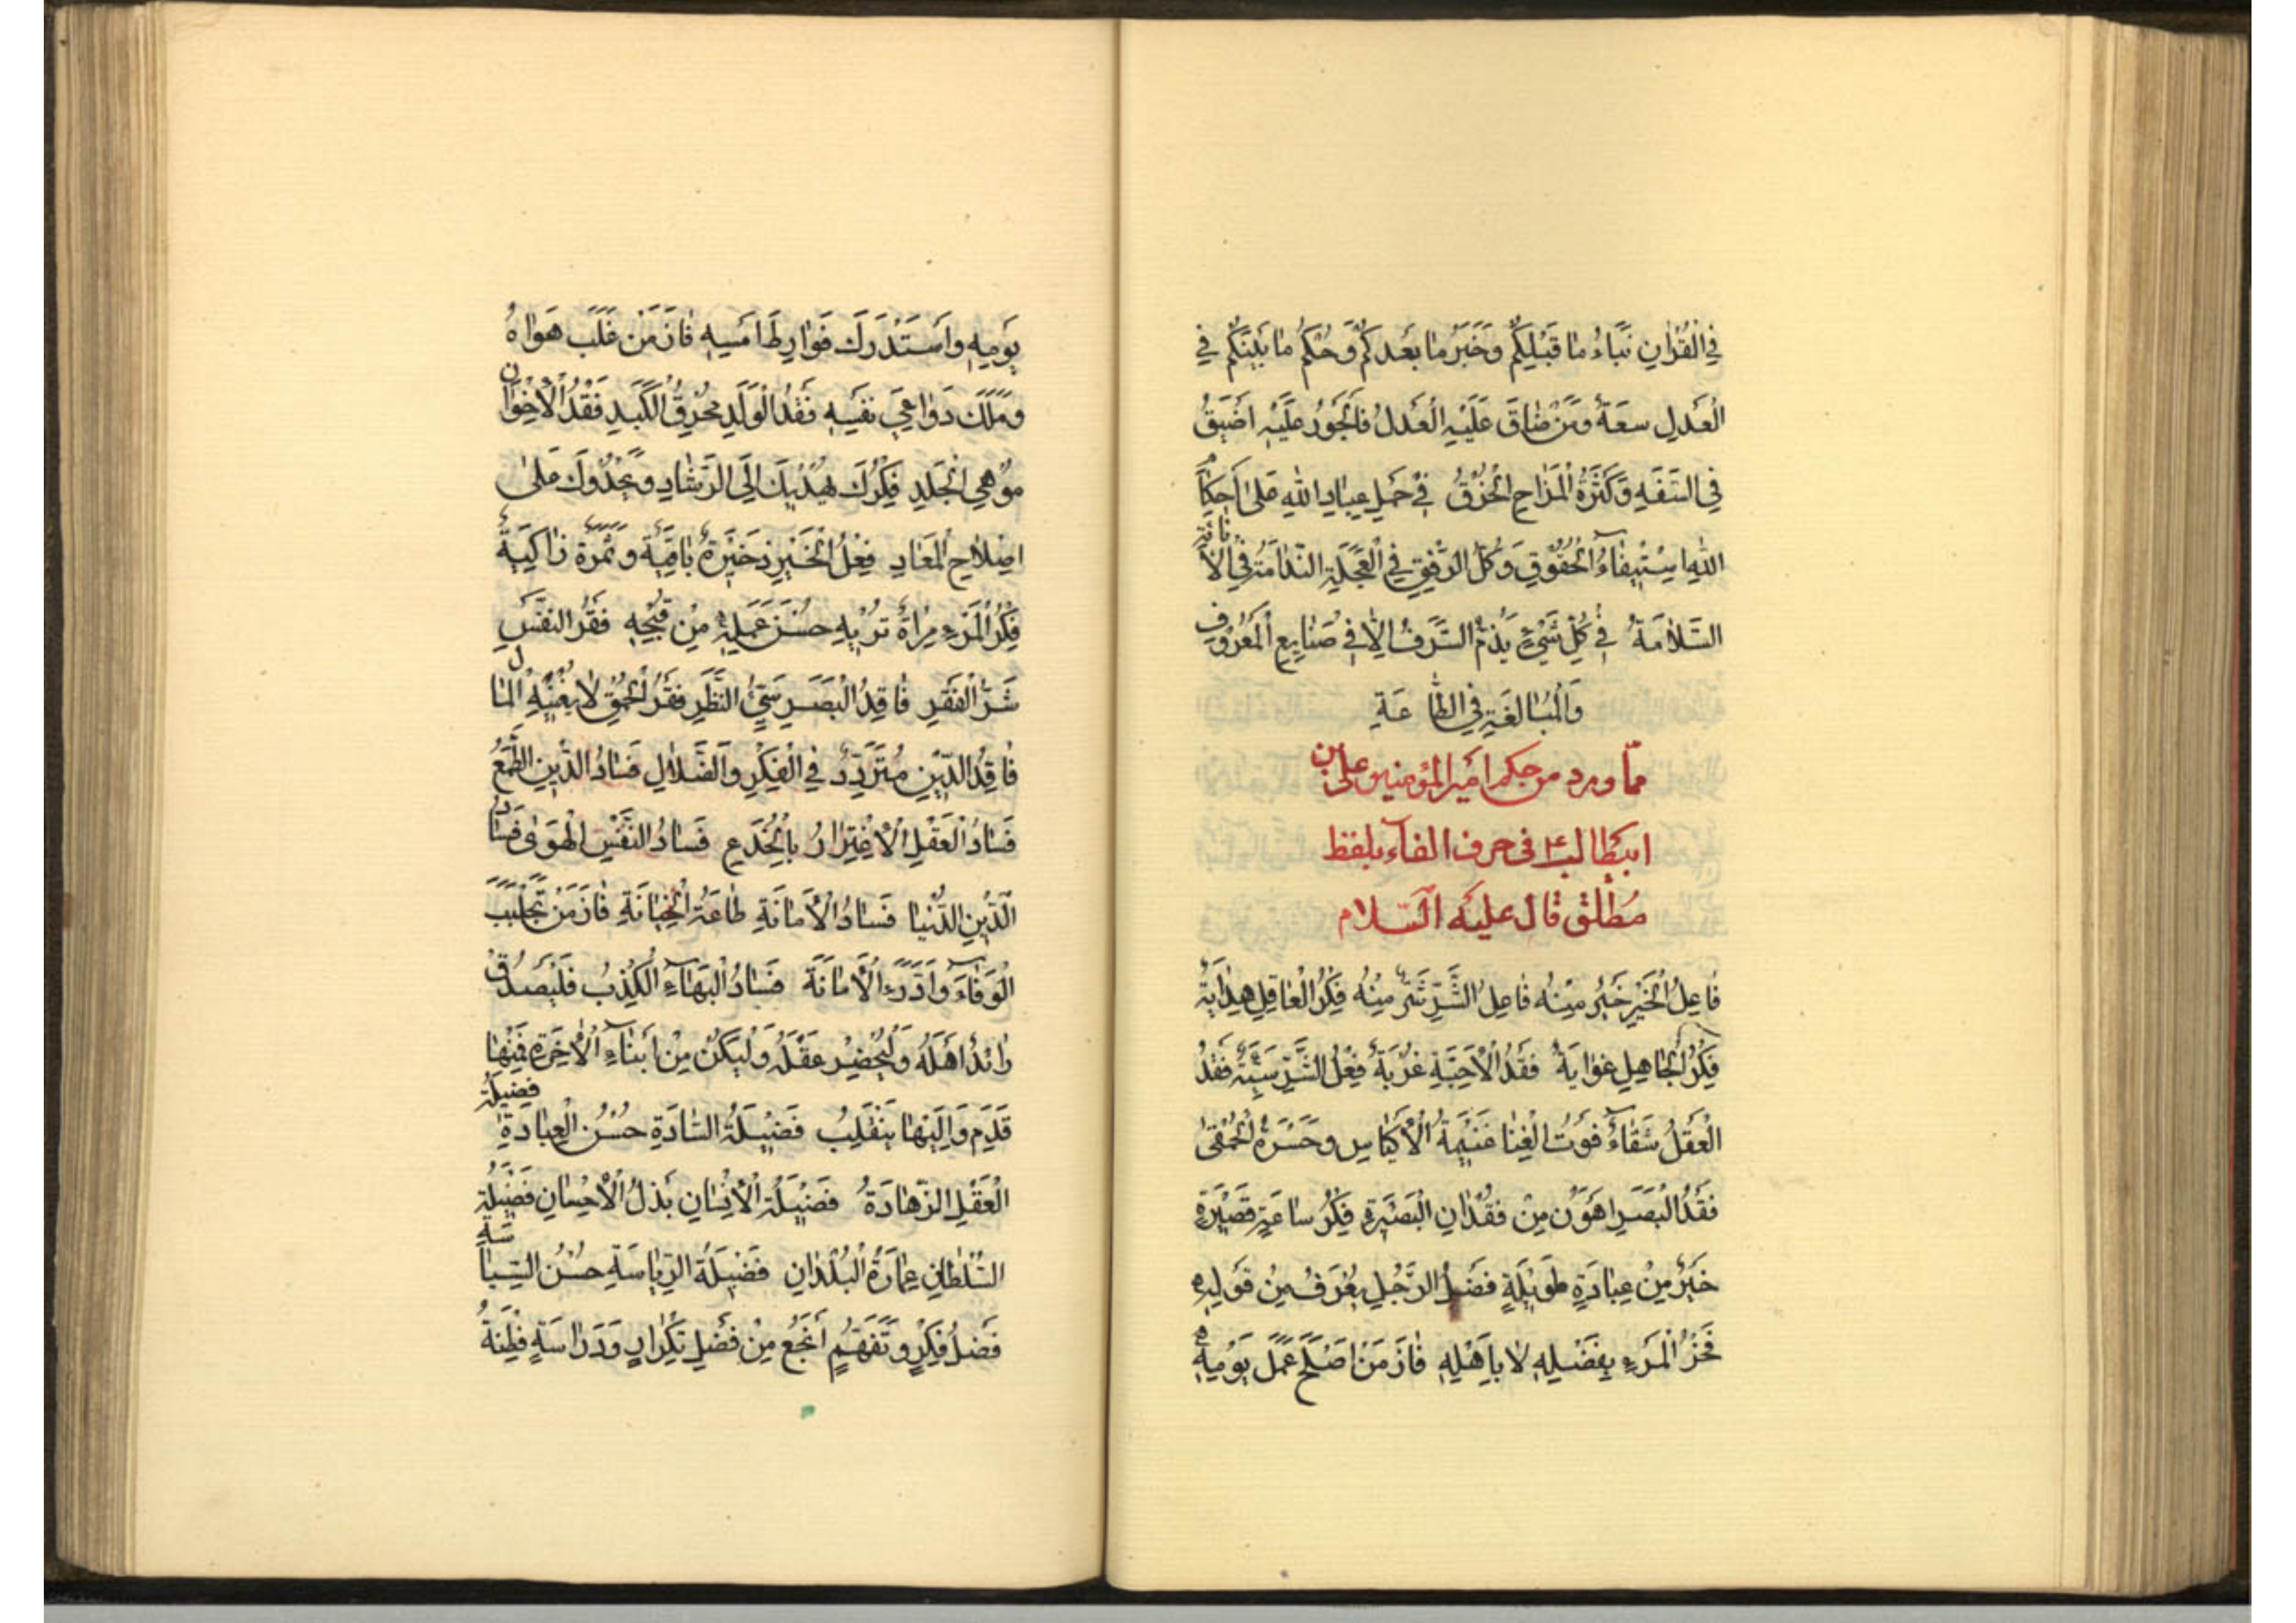 فِي الْقُرْاٰنِ نَبَاءُ مٰا قَبْلِكُمْ وَخَبَرُ مٰا بَعْدَكُمْ وَحُكْمُ مٰا بَيْنَكُمْ فِي
الْعَدْلِ سَعَةٌ وَمَنْ ضٰاقَ عَلَيْهِ الْعَدْلُ فَالْجَوْرُ عَلَيْهِ اَضْيَقُ
فِي السَّفَهِ وَكَثْرَةِ الْمَزٰاحِ الْخُرْقُ فِي حَمْلِ عِبٰادِ اللهِ عَلىٰ اَحْكٰامِ
اللهِ اسْتِيفٰاءُ الْحُقُوقِ وَكُلُّ الرِّفْقِ فِي الْعَجَلَةِ النَّدٰامَةُ فِي الْاَنٰاةِ
السَّلٰامَةُ فِي كُلِّ شَيْءٍ يُذَمُّ السَّرَفُ اِلّٰا فِي صَنٰايِعِ الْمَعْرُوفِ
وَالْمُبٰالَغَةِ فِي الطّٰاعَةِ
ممّا ورد من حكم امير المؤمنين على بن
ابيطالب ع في حرف الفاء بلفظ
مُطلق قال عليه السّلام
فٰاعِلُ الْخَيْرِ خَيْرٌ مِنْهُ فٰاعِلُ الشَّرِّ شَرٌّ مِنْهُ فِكْرُ الْعٰاقِلِ هِدٰايَةٌ
فِكْرُ الْجٰاهِلِ غَوٰايَةٌ فَقْدُ الْاَحِبَّةِ غُرْبَةٌ فِعْلُ الشَّرِّ سُبَّةٌ فَقْدُ
الْعَقْلِ شَقٰاءٌ فَوْتُ الْغِنٰا غَنيمَةُ الْاَكْيٰاسِ وَحَسْرَةُ الْحَمْقىٰ
فَقْدُ الْبَصَرِ اَهْوَنُ مِنْ فِقْدٰانِ الْبَصيرَةِ فِكْرُ سٰاعَةٍ قَصيرَةٍ
خَيْرٌ مِنْ عِبٰادَةٍ طَويلَةٍ فَضْلُ الرَّجُلِ يُعْرَفُ مِنْ قَوْلِهِ
فَخْرُ الْمَرْءِ بِفَضْلِهِ لٰا بِاَهْلِهِ فٰازَ مَنْ اَصْلَحَ عَمَلَ يَوْمِهِ
يَوْمِهِ وَاسْتَدْرَكَ فَوٰارِطَ اَمْسِهِ فٰازَ مَنْ غَلَبَ هَوٰاهُ
وَمَلَكَ دَوٰاعِيَ نَفْسِهِ فَقْدُ الْوَلَدِ مُحْرِقُ الْكَبَدِ فَقْدُ الْاِخْوٰانِ
مُوهِي الْجَلَدِ فِكْرُكَ يَهْدِيكَ اِلَى الرَّشٰادِ وَيَحْدُوكَ عَلىٰ
اِصْلٰاحِ الْمَعٰادِ فِعْلُ الْخَيْرِ ذَخيرَةٌ بٰاقِيَةٌ وَثَمَرَةٌ زٰاكِيَةٌ
فِكْرُ الْمَرْءِ مِرْاٰةٌ تُريهِ حُسْنَ عَمَلِهِ مِنْ قُبْحِهِ فَقْرُ النَّفْسِ
شَرُّ الْفَقْرِ فٰاقِدُ الْبَصَرِ سَيِّئُ النَّظَرِ فَقْرُ الْحُمْقِ لٰا يُغْنيهِ الْمٰال
فٰاقِدُ الدِّينِ مُتَرَدِّدٌ فِي الْفِكْرِ وَالضَّلٰالِ فَسٰادُ الدِّينِ الطَّمَعُ
فَسٰادُ الْعَقْلِ الْاِغْتِرٰارُ بِالْخُدَعِ فَسٰادُ النَّفْسِ الْهَوىٰ فَسٰادُ
الدِّينِ الدُّنْيٰا فَسٰادُ الْاَمٰانَةِ طٰاعَةُ الْخِيٰانَةِ فٰازَ مَنْ تَجَلْبَبَ
الْوَفٰاءَ وَادَّرَءَ الْاَمٰانَةَ فَسٰادُ الْبَهٰاءِ الْكِذْبُ فَلْيَصْدُقْ
رٰائِدٌ اَهْلَهُ وَلْيُحْضِرْ عَقْلَهُ وَلْيَكُنْ مِنْ اَبْنٰاءِ الْاٰخِرَةِ فَمِنْهٰا
قَدِمَ وَاِلَيْهٰا يَنْقَلِبُ فَضيلَةُ السّٰادَةِ حُسْنُ الْعِبٰادَةِ فضيلة
الْعَقْلِ الزَّهٰادَةُ فَضيلَةُ الْاِنْسٰانِ بَذْلُ الْاِحْسٰانِ فَضيلَةُ
السُّلْطٰانِ عِمٰارَةُ الْبُلْدٰانِ فَضيلَةُ الرِّيٰاسَةِ حُسْنُ السِّيٰاسَةِ
فَضْلُ فِكْرٍ وَتَفَهُّمٍ اَنْجَعُ مِنْ فَضْلِ تَكْرٰارٍ وَدَرٰاسَةٍ فِطْنَةُ